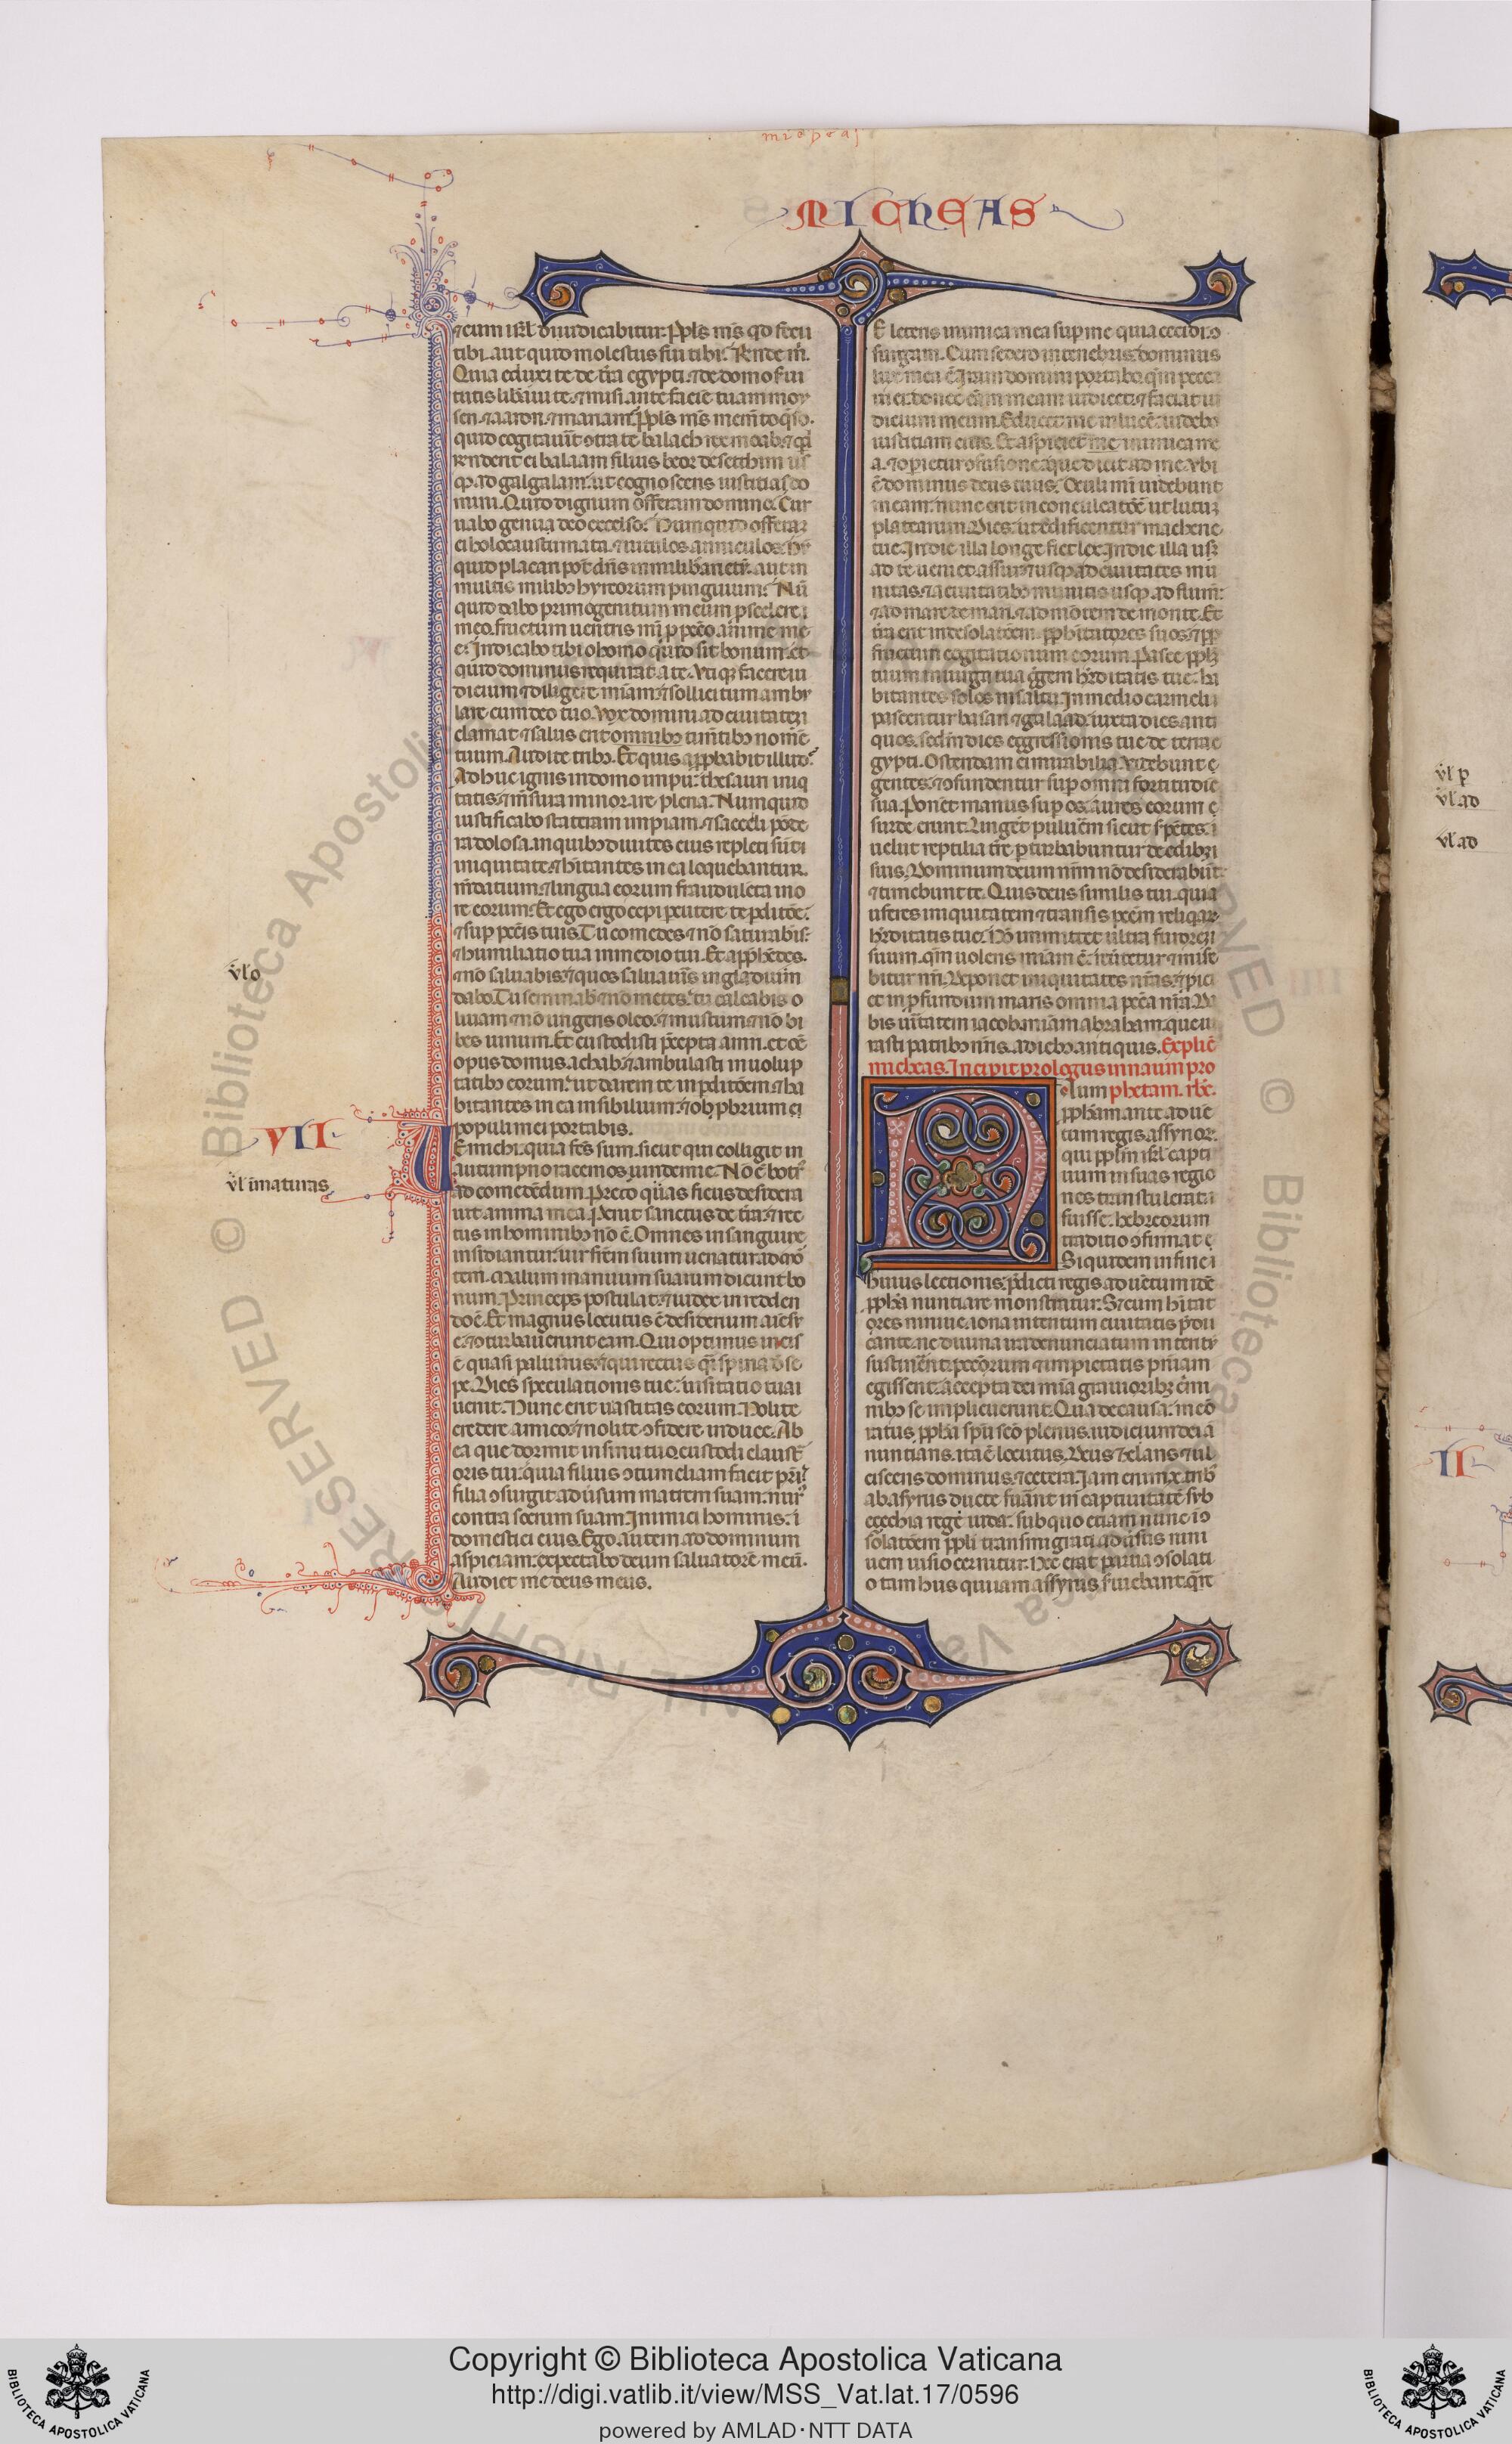 micheas
MICHEAS
⁊cum isrl̄ diiudicabitur. Ppl̄s mꝰ qͥd feci
tibi. aut quid molestus fui tibi: Rn̄de m̄.
Quia eduxi te de tr̄a egypti. ⁊ de domo ẜui
tutis libaui te. ⁊ misi ante faciē tuam moy
sen. ⁊ aaron. ⁊ mariam. Ppl̄s mꝰ mem̄to q̄so.
quid cogitauit ↄtra te balach rex moab. ⁊ qͥd
rn̄derit ei balaam filius beor de setthim us
qꝫ ad galgalam. ut cognosceres iustitias do
mini. Quid dignum offeram domino. Cur
uabo genua deo excelso: Numquid offeram
ei holocaustumata. ⁊ uitulos anniculos: Nū
quid placari pot̄ dn̄s in milib; arietū. aut in
multis milibꝫ hyrcorum pinguium: Nū
quid dabo primogenitum meum p scelere
meo. fructum uentris mi p pccō anime me
e: Indicabo tibi o homo quid sit bonum. et
quid dominus requirat a te. Vtiqꝫ facere iu
dicium ⁊ diligere miam. ⁊ sollicitum ambu
lare cum deo tuo. Vox domini ad ciuitatem
clamat. ⁊ salus erit omnibꝫ timtibꝫ nomē
tuum. Audite tribꝰ. Et quis approbabit illud:
Adhuc ignis in domo impii: thesauri iniq
tatis. ⁊ m̄sura minor ire plena. Numquid
iustificabo stateram impiam. ⁊ saccelli pōde
ra dolosa. in quibꝫ diuites eius repleti sūt i
iniquitate. ⁊ hītantes in ea loquebantur
m̄datium. ⁊ lingua eorum fraudulēta in o
re eorum. Et ego ergo cepi pcutere te pditōe.
⁊ sup pccīs tuis. Tu comedes ⁊ nō saturabis.
⁊ humiliatio tua in medio tui. Et appͭhēdes.
⁊ nō saluabis. ⁊ quos saluauis in gladium
dabo. Tu seminabis ⁊ nō metes. tu calcabis o
liuam ⁊ nō ungeris oleo. ⁊ mustum ⁊ nō bi
bes uinum. Et custodisti p̄cepta amri. et oē
opus domus achab. ⁊ ambulasti in uolup
tatibꝫ eorum. ut darem te in pditōem. ⁊ ha
bitantes in ea in sibilum. ⁊ obpbrium
populi mei portabis.
VII
Ve michi. quia fcs̄ sum. sicut qui colligit in
autumpno racemos uindemie. Nō ē botrꝰ
ad comedēdum. Preco qͣas ficus desidera
uit anima mea. Periit sanctus de tr̄a. ⁊ rec
tus in hominibꝫ nō ē. Omnes in sanguine
insidiantur. uir frēm suum uenatur ad mō
tem. Malum manuum suarum dicunt bo
num. Princeps postulat. ⁊ iudex in redden
doē. Et magnus locutus ē desiderium aīe su
e. ⁊ ↄturbauerunt eam. Qui optimus in eis
ē quasi paliurus. ⁊ qui rectus qͣsi spina de se
pe. Dies speculationis tue: uisitatio tua
uenit. Nunc erit uastitas eorum. Nolite
credere amico. ⁊ nolite ↄfidere in duce. Ab
ea que dormit in sinu tuo. custodi claustͣ
oris tui: quia filius ↄtumeliam facit pri.
filia ↄsurgit aduersum matrem suam. nurꝰ
contra socrum suam. Inimici hominis:
domestici eius. Ego autem ad dominum
aspiciam: expectabo deum saluatorē meū.
Audiet me deus meus.
vl̄ o
vl̄ imaturas
E leteris inimica mea sup me quia cecidi. ↄ
surgam. Cum sedero in tenebris: dominus
lux mea ē. Iram domini portabo. qm̄ pecca
ui ei. donec cām meam iudicet. ⁊ faciat iu
dicium meum. Educet me in lucē: uidebo
iustitiam eius. Et aspiciet me inimica me
a. ⁊ opietur ↄfusione. que dicit ad me. vbi
ē dominus deus tuus. Oculi mī uidebunt
in eam: nunc erit in conculcatōē ut lutū
platearum. Dies: ut edificentur macherie
tue. In die illa longe fiet lex. In die illa usqꝫ
ad te ueniet assur. ⁊ usqꝫ ad ciuitates mu
nitas. ⁊ a ciuitatibꝫ munitis usqꝫ ad flumē:
⁊ ad mare de mari. ⁊ ad mōtem de monte. Et
tr̄a erit in desolatōem. pp̄t habitatores suos. ⁊ pp̄
fructum cogitationum eorum. Pasce ppl̄m
tuum in uirga tua gͤgem hr̄ditatis tue: ha
bitantes solos in saltu. In medio carmeli:
pascentur basan ⁊ galaad. iuxta dies anti
quos. scd̄m dies egressionis tue de terra e
gypti. Ostendam ei mirabilia. Videbunt
gentes. ⁊ ↄfundentur sup omni fortitudie
sua. Ponet manus sup os. aures eorum
surde erunt. Lingēt puluēm sicut sp̄ētes.
uelut reptilia tr̄e pturbabuntur de edibꝫ
suis. Dominum deum nrm̄ nō desiderabūt.
⁊ timebunt te. Quis deus similis tui. quia
ufers iniquitatem. ⁊ transis pccm̄ reliquiarꝫ
hr̄ditatis tue. Nō immittet ultra furorem
suum. qm̄ uolens miam ē: reuertetur ⁊ mise
bitur nri. Deponet iniquitates nrās. ⁊ piciet
et in pfundum maris omnia pccā nrā. Da
bis uitatem iacob. miam abraham. que iu
rasti patribꝫ nrīs. a diebꝫ antiquis. Explic̄
micheas. Incipit prologus in naum pro
phetam. rbc̄.
pph̄am. ante aduē
tum regis assyriorꝫ
qui ppl̄m isrl̄ capti
uum in suas regio
nes transtulerat.
fuisse. hebreorum
traditio ↄfirmat
Siquidem in fine
huius lectionis. p̄dicti regis aduētum idē
pph̄a nuntiare monstratur. S; cum hītat
ores niniue. iona intentum ciuitatis p̄di
cante. ne diuina ira denunciatum intentū
sustinēnt. pccōrum ⁊ impietatis pniam
egissent. accepta dei mia grauioribꝫ c̄imi
nibꝫ se implicuerunt. Qua de causa. in eō
ratus pph̄a spū scō plenus. iudicium dei a
nuntians. ita ē locutus. Deus zelans ⁊ ul
ciscens dominus. ⁊ cetera. Iam enim x. tribꝰ
ab assyriis ducte fuānt in captiuitatē sub
ezechia rege iuda: sub quo etiam nunc in ↄ
solatōem ppl̄i transmigrati. aduersus nini
uem uisio cernitur. Nec erat parua ↄsolati
o tam hiis qui iam assyriis seruiebant. qͣm
vl̄ p
vl̄ ad
vl̄ ad
II
© Biblioteca Apostolica Vaticana ALL RIGHTS RESERVED
Copyright © Biblioteca Apostolica Vaticana
http://digi.vatlib.it/view/MSS_Vat.lat.17/0596
powered by AMLAD·NTT DATA
BIBLIOTECA APOSTOLICA VATICANA
BIBLIOTECA APOSTOLICA VATICANA